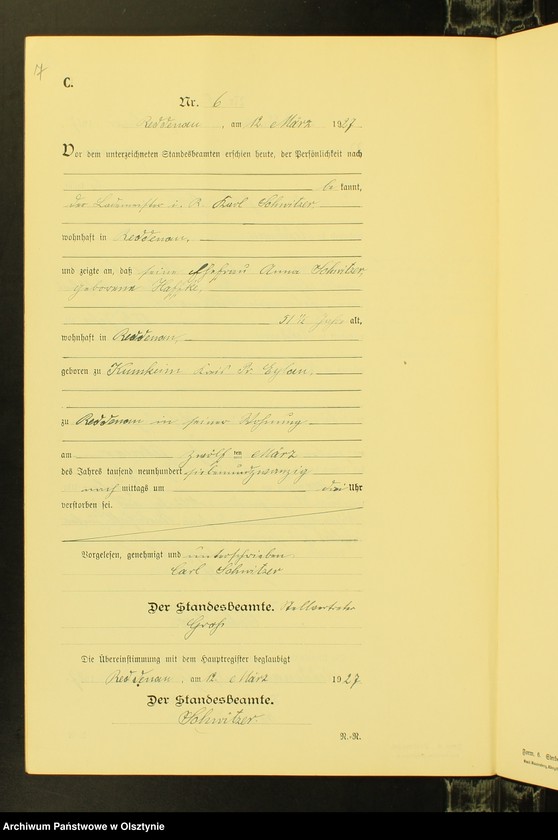 C.
Nr. 6
Reddenau, am 12 März 1927
Vor dem unterzeichneten Standesbeamten erschien heute, der Persönlichkeit nach
be kannt,
der i. R. Karl Schwitzer
wohnhaft in Reddenau.
und zeigte an, daß seine Ehefrau Anna Schwitzer
geborene
alt,
wohnhaft in Reddenau,
geboren zu Kumkeim Kreis Pr. Eylau,
zu Reddenau in seiner Wohnung
am zwölf ten März
des Jahres tausend neunhundert siebenundzwanzig
nach mittags um drei Uhr
verstorben sei.
Vorgelesen, genehmigt und unterschrieben
Carl Schwitzer
Der Standesbeamte. Stellvertreter
Die Übereinstimmung mit dem Hauptregister beglaubigt
Reddenau, am 12 März 1927
Der Standesbeamte.
Schwitzer
R.-R.
Archiwum Państwowe w Olsztynie